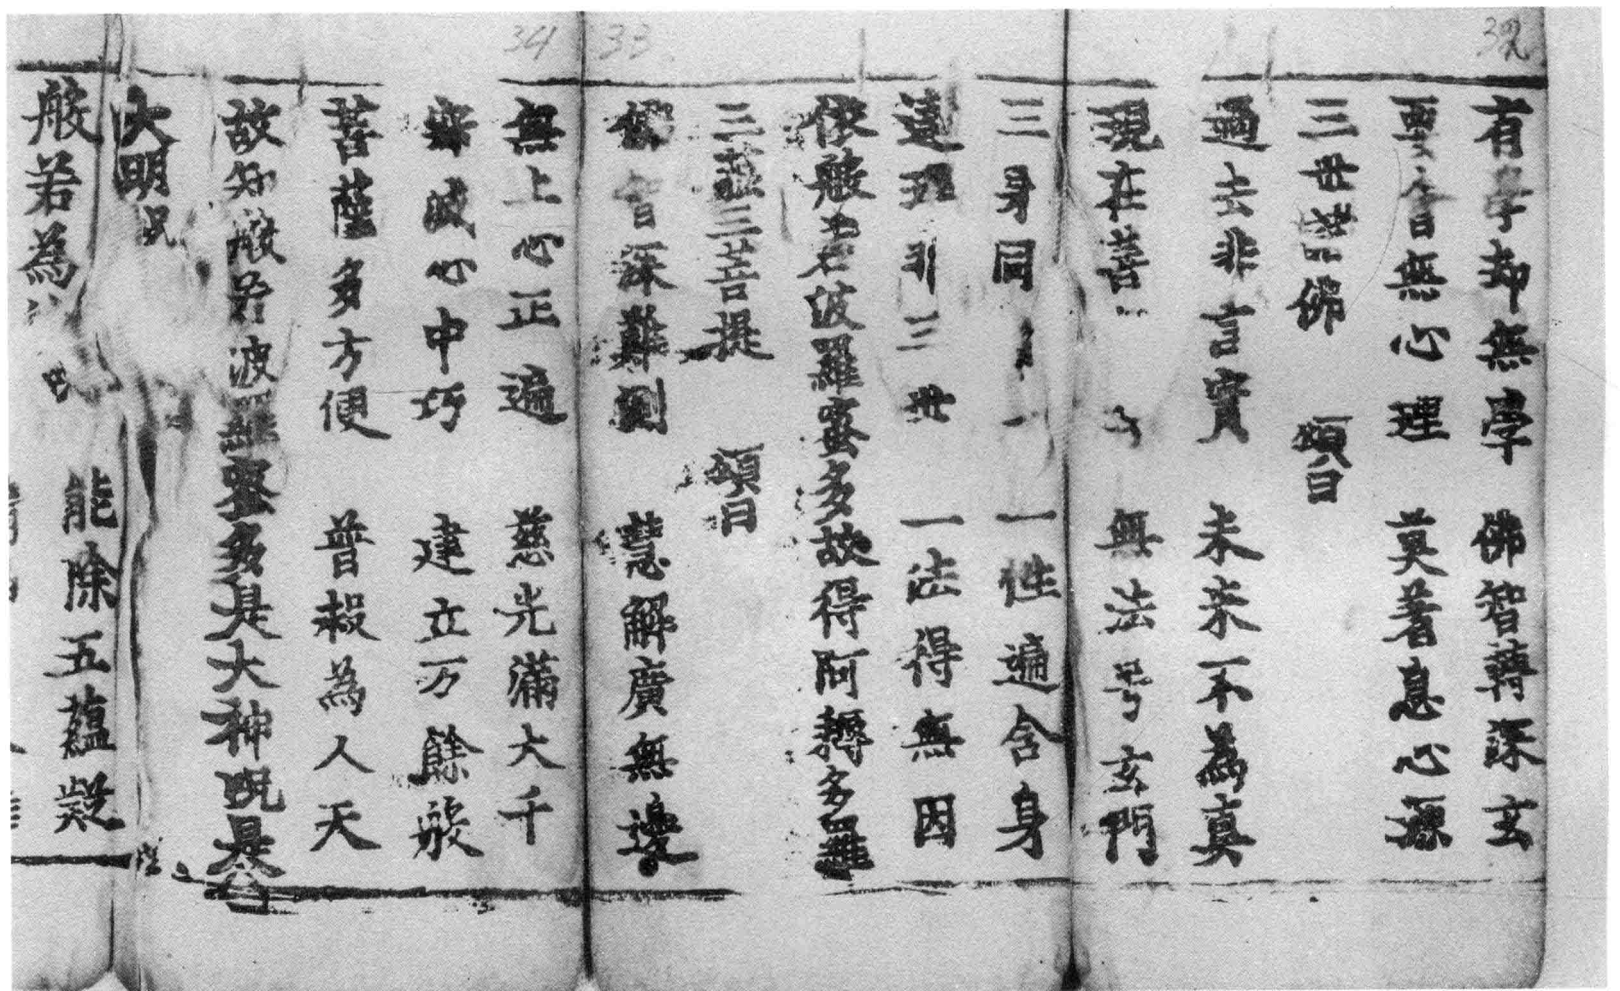 32
有學却無學　佛智轉深玄
要會無心理　莫著息心源
三世諸佛　頌曰
過去非言實　未來不為真
現在菩　無法号玄門
33
三身同　一性遍含身
達理非三世　一法得無因
依般若波羅蜜多故得阿耨多羅
三藐三菩提　頌曰
佛智深難測　慧解廣無邊
34
無上心正遍　慈光滿大千
寂滅心中巧　建立万餘般
菩薩多方便　普救為人天
故知般若波羅蜜多是大神呪是
大明呪
般若為　能除五蘊疑